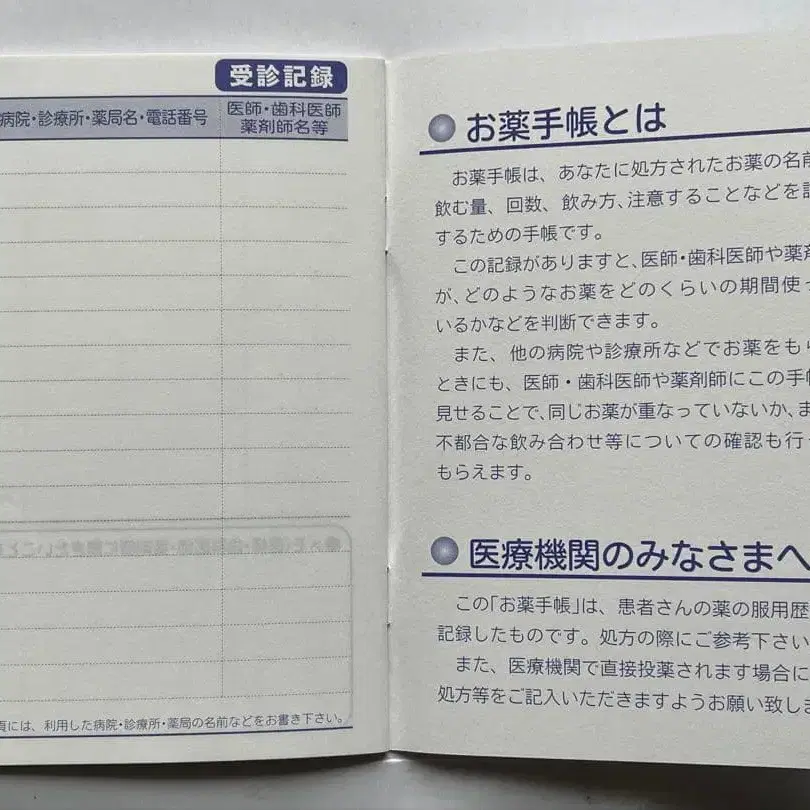 受診記録
病院・診療所・薬局名・電話番号
医師・歯科医師
薬剤師名等
頁には、利用した病院・診療所・薬局の名前などをお書き下さい。
お薬手帳とは
お薬手帳は、あなたに処方されたお薬の名前
飲む量、回数、飲み方、注意することなどを
するための手帳です。
この記録がありますと、医師・歯科医師や薬剤
が、どのようなお薬をどのくらいの期間使っ
いるかなどを判断できます。
また、他の病院や診療所などでお薬をもら
ときにも、医師・歯科医師や薬剤師にこの手帳
見せることで、同じお薬が重なっていないか、ま
不都合な飲み合わせ等についての確認も行っ
もらえます。
医療機関のみなさまへ
この「お薬手帳」は、患者さんの薬の服用歴
記録したものです。処方の際にご参考下さい
また、医療機関で直接投薬されます場合に
処方等をご記入いただきますようお願い致しま